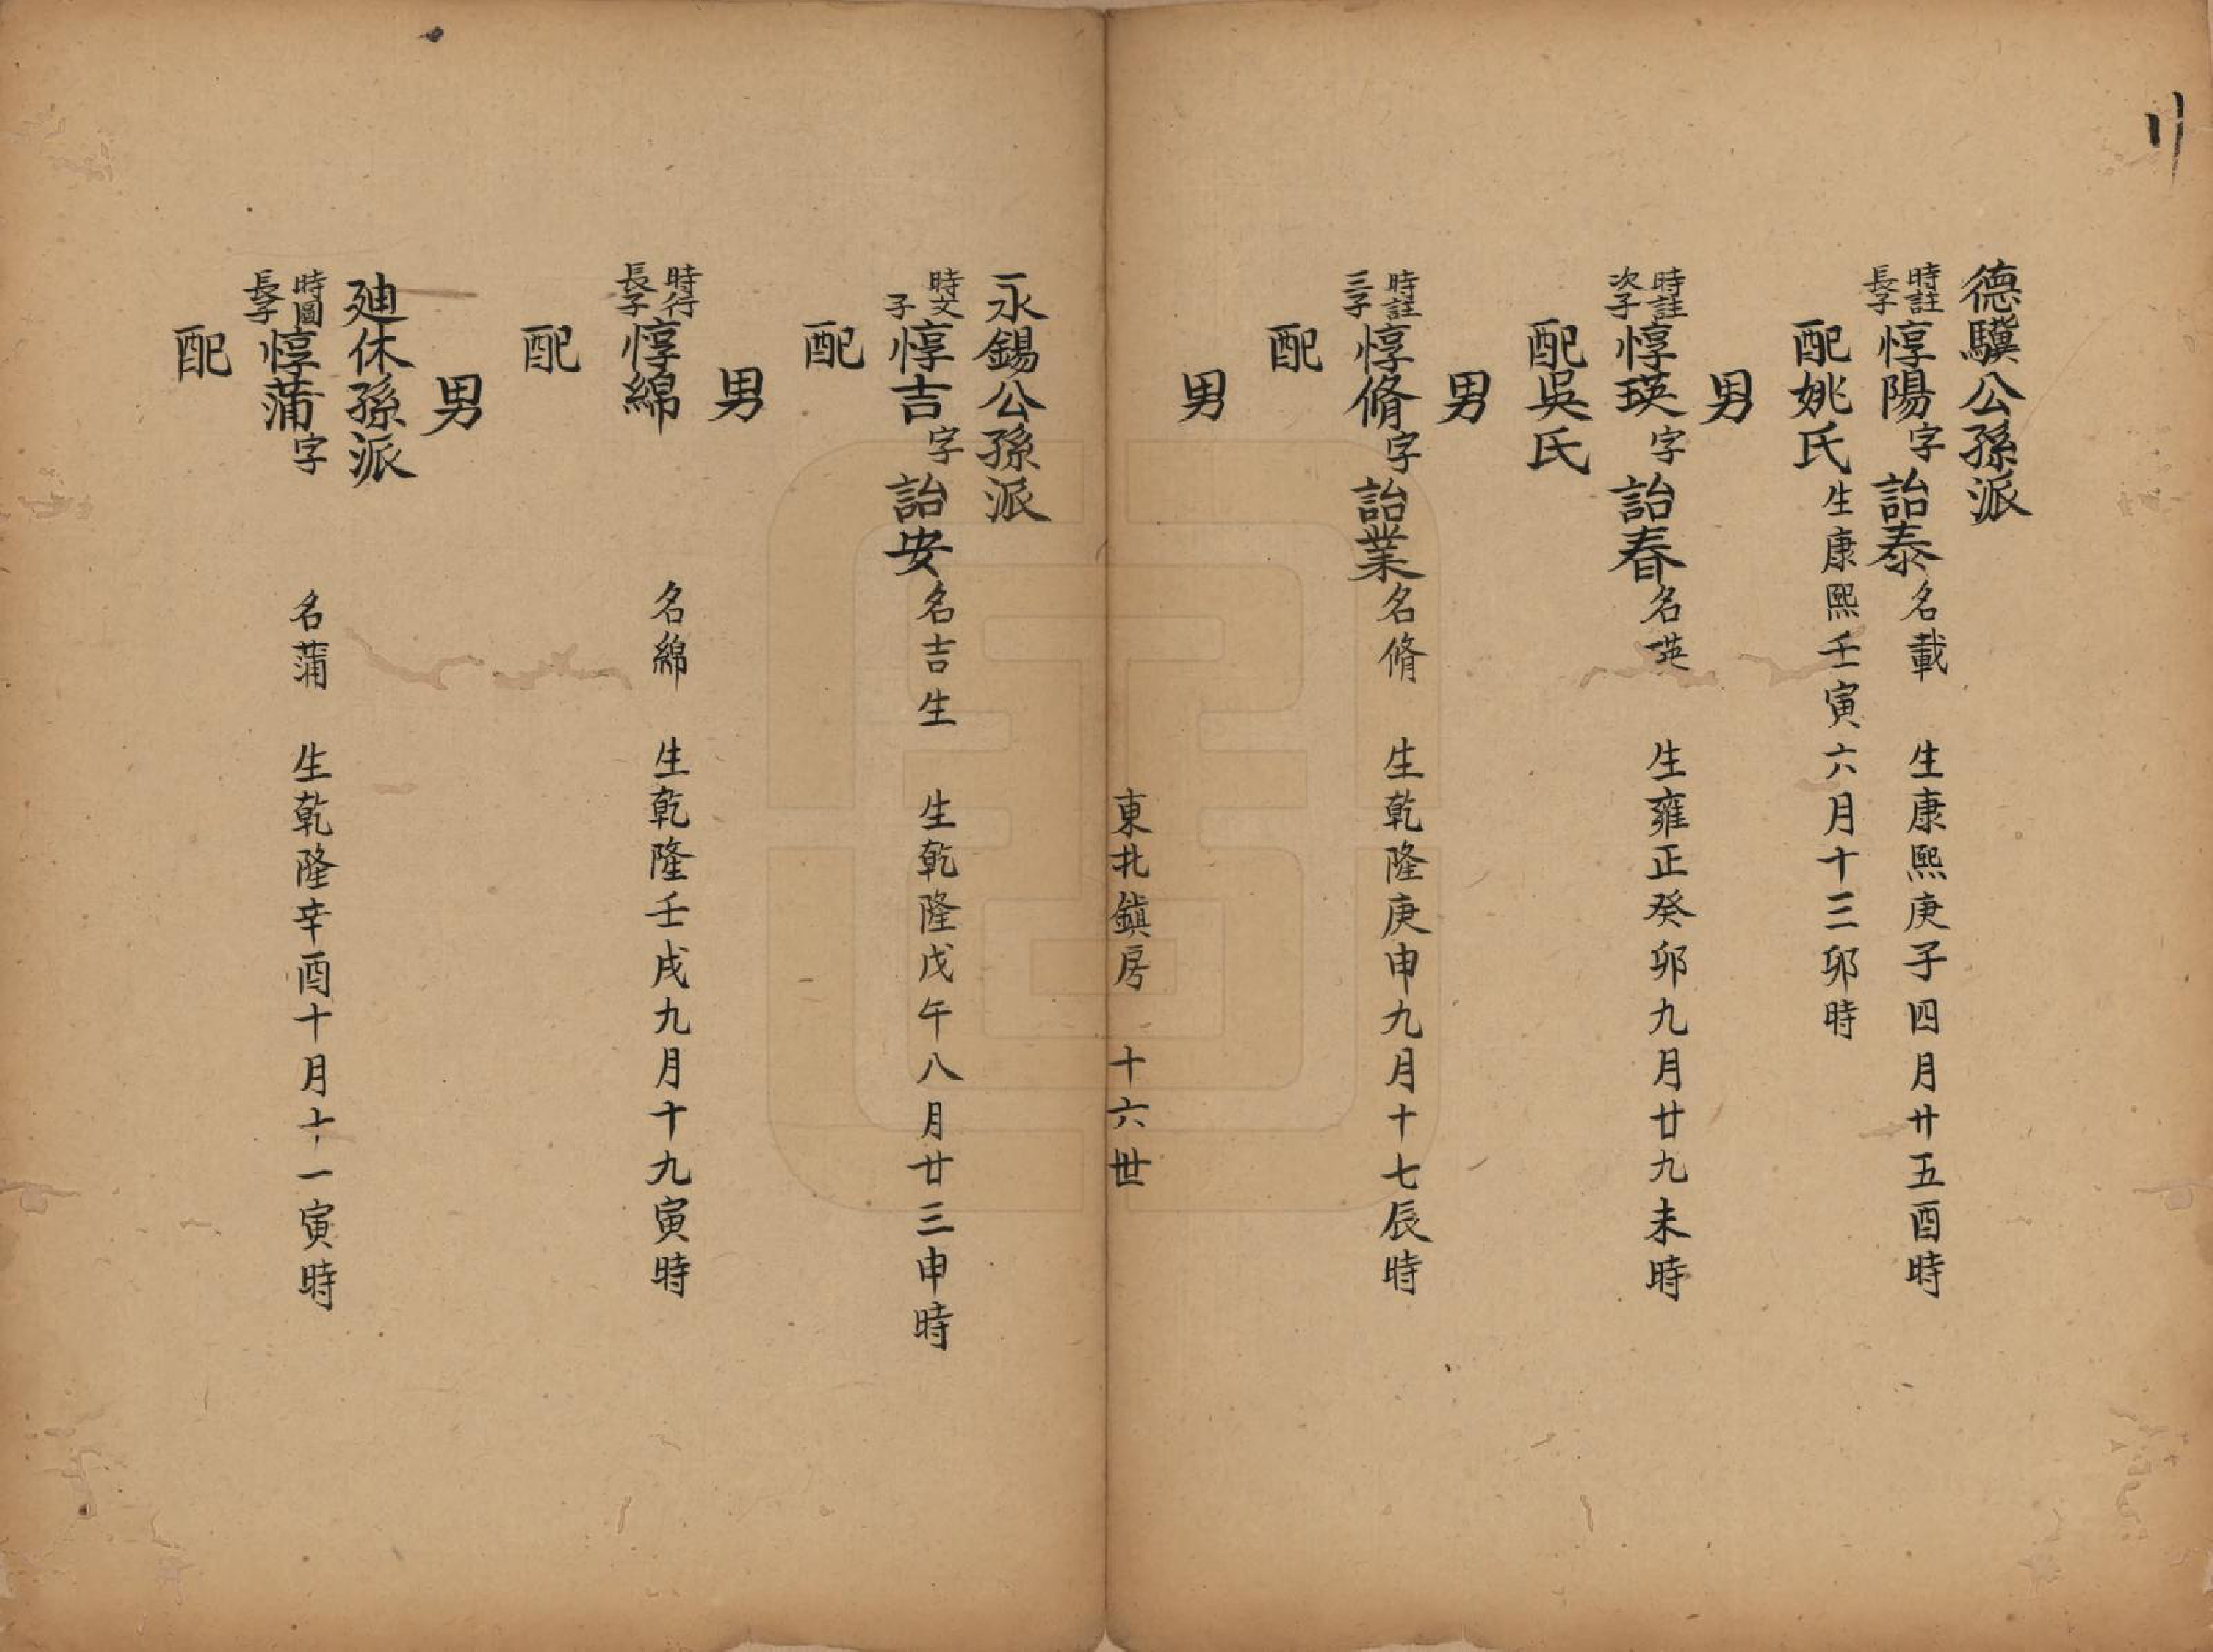 德驥公孫派
時註長子惇陽字詒泰名載 生康熙庚子四月廿五酉時
配姚氏生康熙壬寅六月十三卯時
男
時註次子惇瑛字詒春名英 生雍正癸卯九月廿九未時
配吳氏
男
時註三子惇脩字詒業名脩 生乾隆庚申九月十七辰時
配
男
東北鎮房 十六世
永錫公孫派
時文子惇吉字詒安名吉生 生乾隆戊午八月廿三申時
配
男
時行長子惇綿 名綿 生乾隆壬戌九月十九寅時
配
男
廸休孫派
時圖長子惇蒲字 名蒲 生乾隆辛酉十月十一寅時
配